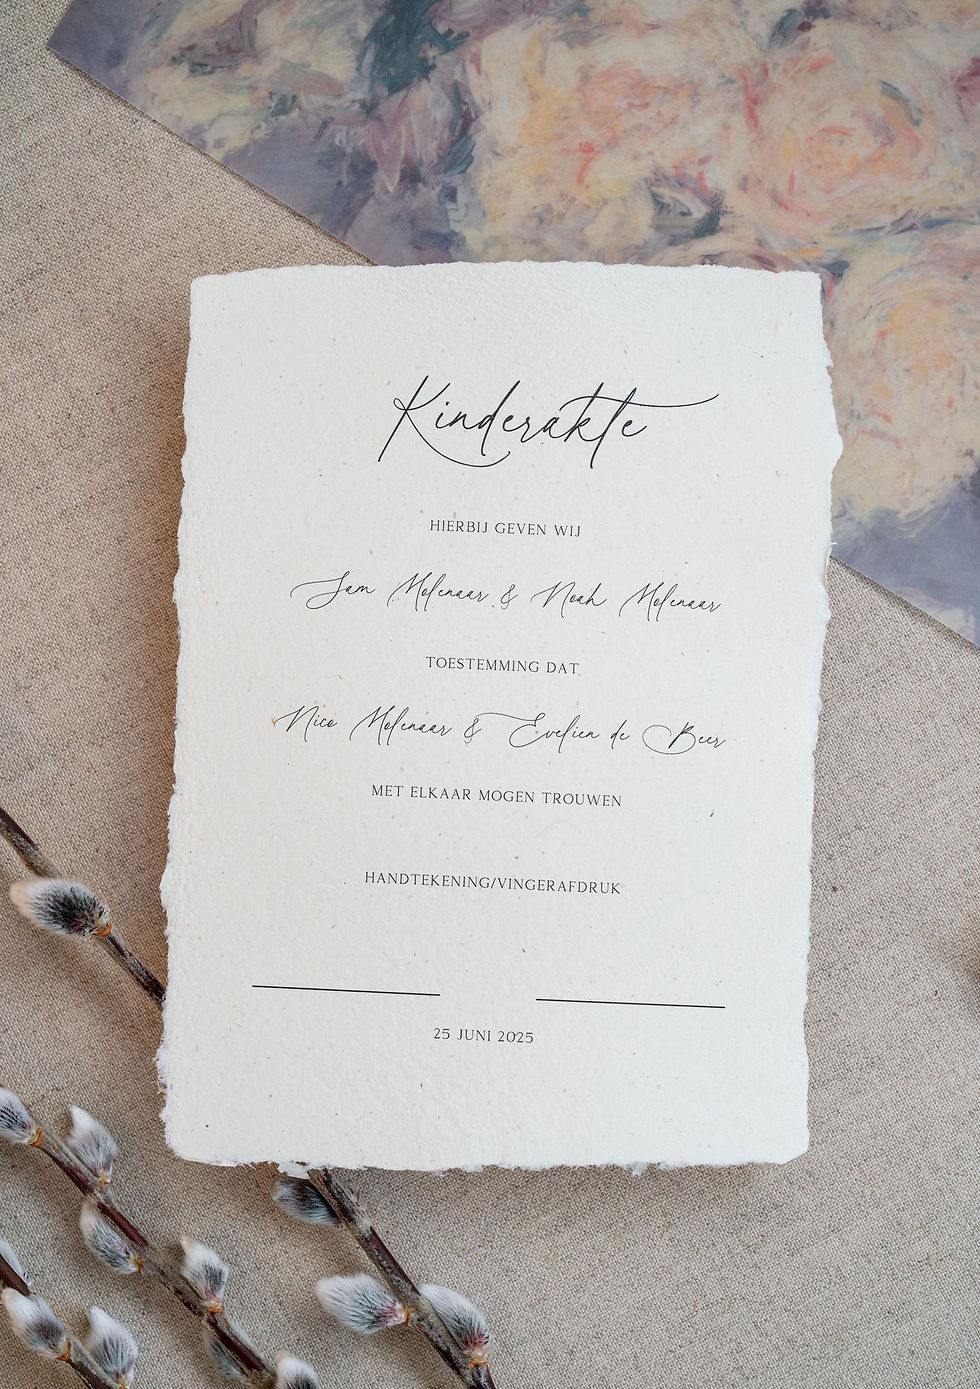 Kinderakte
HIERBIJ GEVEN WIJ
Sam Molenaar & Noah Molenaar
TOESTEMMING DAT
Nico Molenaar & Evelien de Beer
MET ELKAAR MOGEN TROUWEN
HANDTEKENING/VINGERAFDRUK
25 JUNI 2025